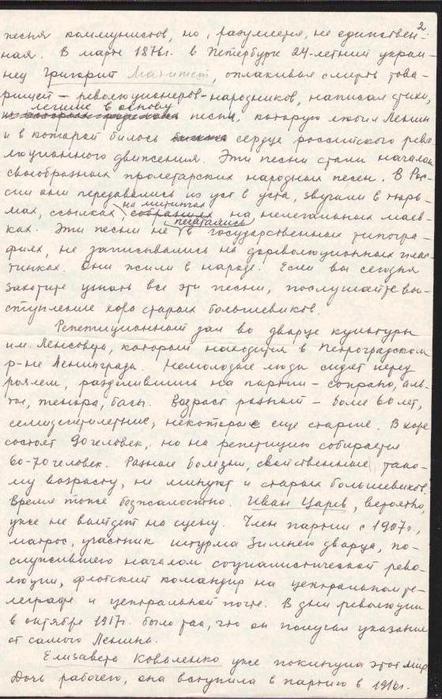 2.
песня коммунистов, но, разумеется, не единствен-
ная. В марте 1876 г. в Петербурге 24-летний украи-
нец Григорий Мачтет, оплакивая смерть това-
рищей – революционеров-народников, написал стихи,
легшие в основу
песни, которую любил Ленин
и в которой билось сердце российского рево-
люционного движения. Эти песни стали началом
своеобразных пролетарских народных песен. В Рос-
сии они передавались из уст в уста, звучали в тюрь-
на митингах
мах, ссылках, собраниях на нелегальных маев-
печатались
ках. Эти песни не в государственных типогра-
фиях, не записывались на дореволюционных плас-
тинках. Они жили в народе. Если вы сегодня
захотите узнать все эти песни, послушайте вы-
ступление хора старых большевиков.
Репетиционный зал во дворце культуры
им. Ленсовета, который находится в Петроградском
р-не Ленинграда. Немолодые люди сидят перед
роялем, разделившись на партии – сопрано, аль-
ты, тенора, басы. Возраст разный – более 60 лет,
семидесятилетние, некоторые еще старше. В хоре
состоят 90 человек, но на репетиции собирается
60-70 человек. Разные болезни, свойственные тако-
му возрасту, не минуют и старых большевиков.
Время тоже безжалостно. Иван Царёв, вероятно,
уже не выйдет на сцену. Член партии с 1907 г.,
матрос, участник штурма Зимнего дворца, по-
служившего началом социалистической рево-
люции, флотский командир на центральном те-
леграфе и центральной почте. В дни революции
в октябре 1917 г. было так, что он получал указание
от самого Ленина.
Елизавета Коваленко уже покинула этот мир.
Дочь рабочего, она вступила в партию в 1916 г.